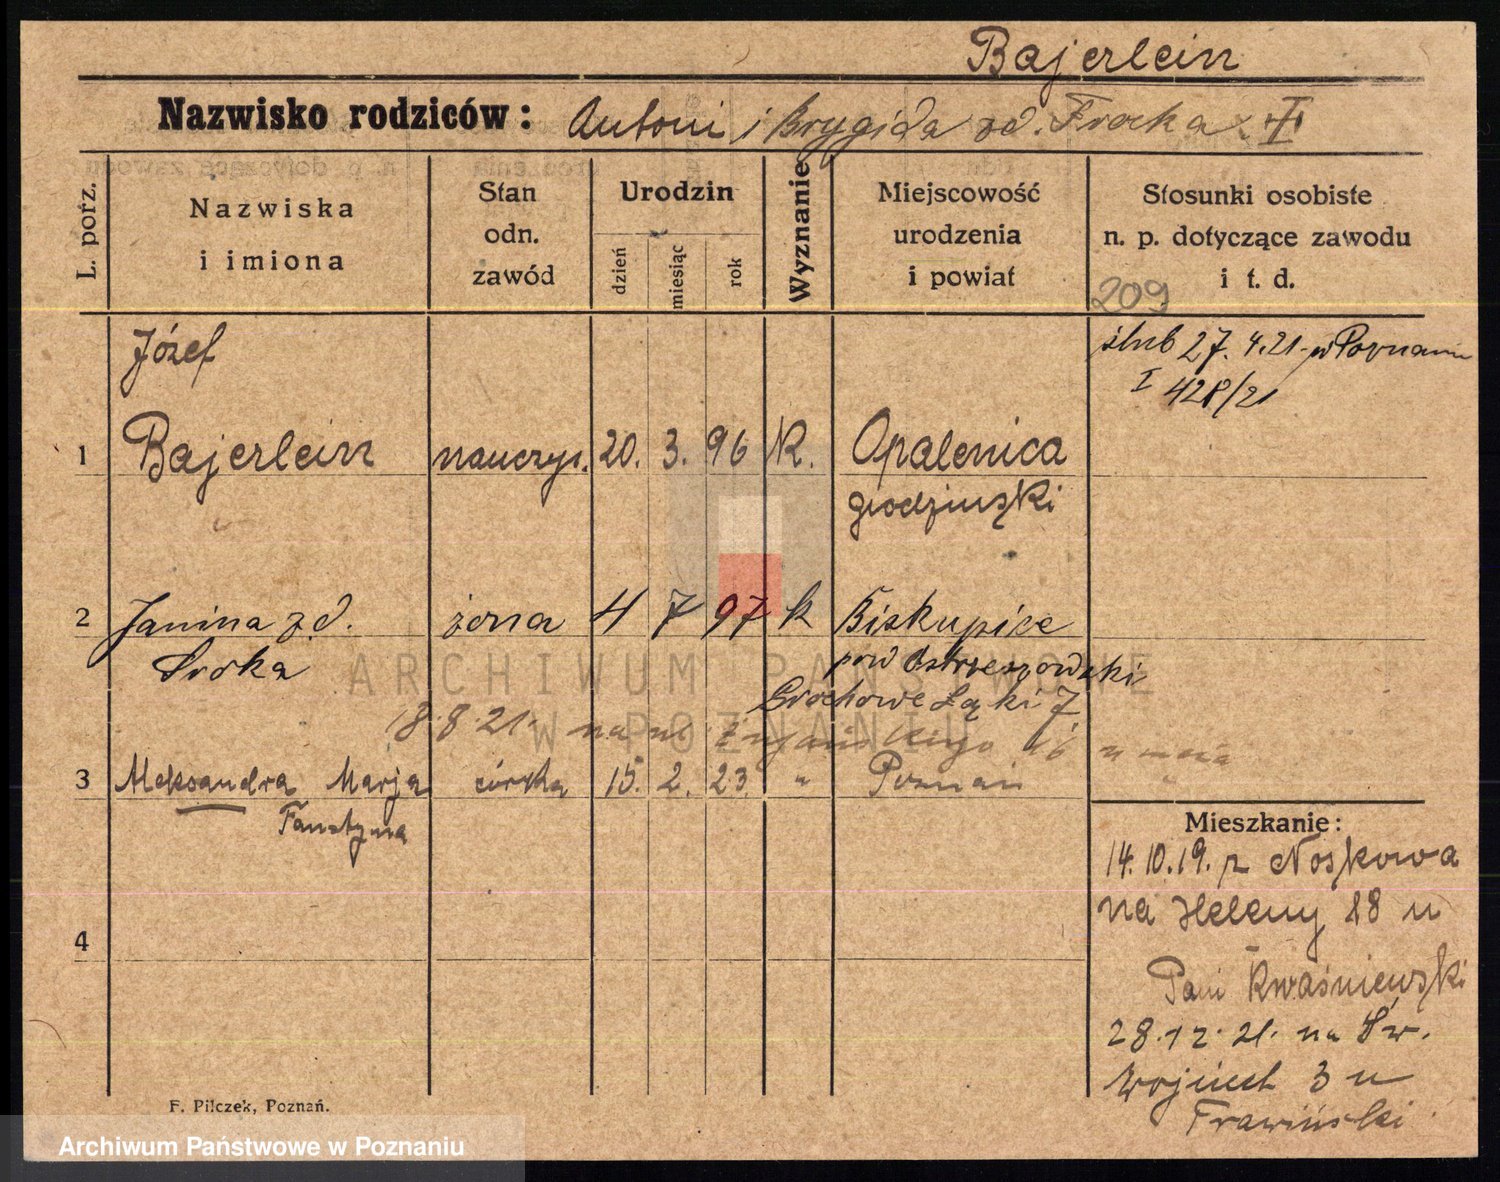 Bajerlein
Nazwisko rodziców: Antoni i Brygida zd. Frocka
L. porz.
Nazwiska
i imiona
Stan
odn.
zawód
Urodzin
dzień
miesiąc
rok
Wyznanie
Miejscowość
urodzenia
i powiat
Stosunki osobiste
n. p. dotyczące zawodu
i t. d.
209
Józef
ślub 27.4.21 w Poznaniu
I 428/21
1 Bajerlein nauczyc. 20. 3. 96 K. Opalenica
grodziski
2 Janina zd. żona 4 7 97 k Biskupice
Sroka pow Ostrzeszowski
Grochowe Łąki 7
18.8.21. na ul.
3 Aleksandra Marja córka 15. 2. 23. " Poznań
Mieszkanie:
14.10.19. z Noskowa
na Heleny 18 u
4
Pani Kwaśniewski
28.12.21. na Św.
Wojciech 3 u
F. Pilczek, Poznań.
ARCHIWUM PAŃSTWOWE
W POZNANIU
Archiwum Państwowe w Poznaniu